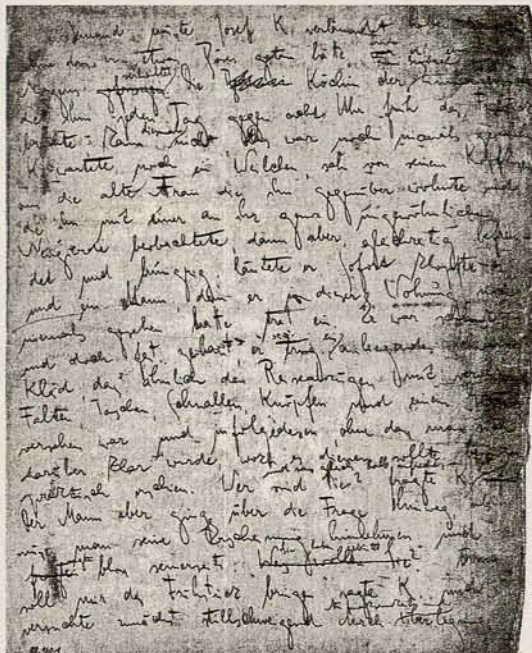 Jemand musste Josef K. verläumdet haben
etwas Böses getan hätte,
Morgens verhaftet Die Köchin der
die ihm jeden Tag gegen acht Uhr früh das
brachte kam diesmal nicht. Das war noch niemals
K. wartete noch ein Weilchen, sah von seinem Kopfkissen
aus die alte Frau die ihm gegenüber wohnte und
die ihn mit einer an ihr ganz ungewöhnlichen
Neugierde beobachtete, dann aber, gleichzeitig befrem-
det und hungrig, läutete er. Sofort klopfte es
und ein Mann, den er in dieser Wohnung noch
niemals gesehen hatte trat ein. Er war schlank
und doch fest gebaut, er trug ein anliegendes
Kleid das ähnlich den Reiseanzügen mit
Falten, Taschen, Schnallen, Knöpfen und einem
versehen war und infolgedessen ohne dass man
darüber klar wurde, wozu es dienen sollte,
praktisch erschien. Wer sind Sie? fragte K. und saß gleich halb aufrecht
Der Mann aber ging über die Frage hinweg, als
müsse man seine Erscheinung hinnehmen und
sagte bloss seinerseits: Sie haben geläutet?
soll mir das Frühstück bringen sagte K. und
versuchte zunächst stillschweigend durch Überlegung